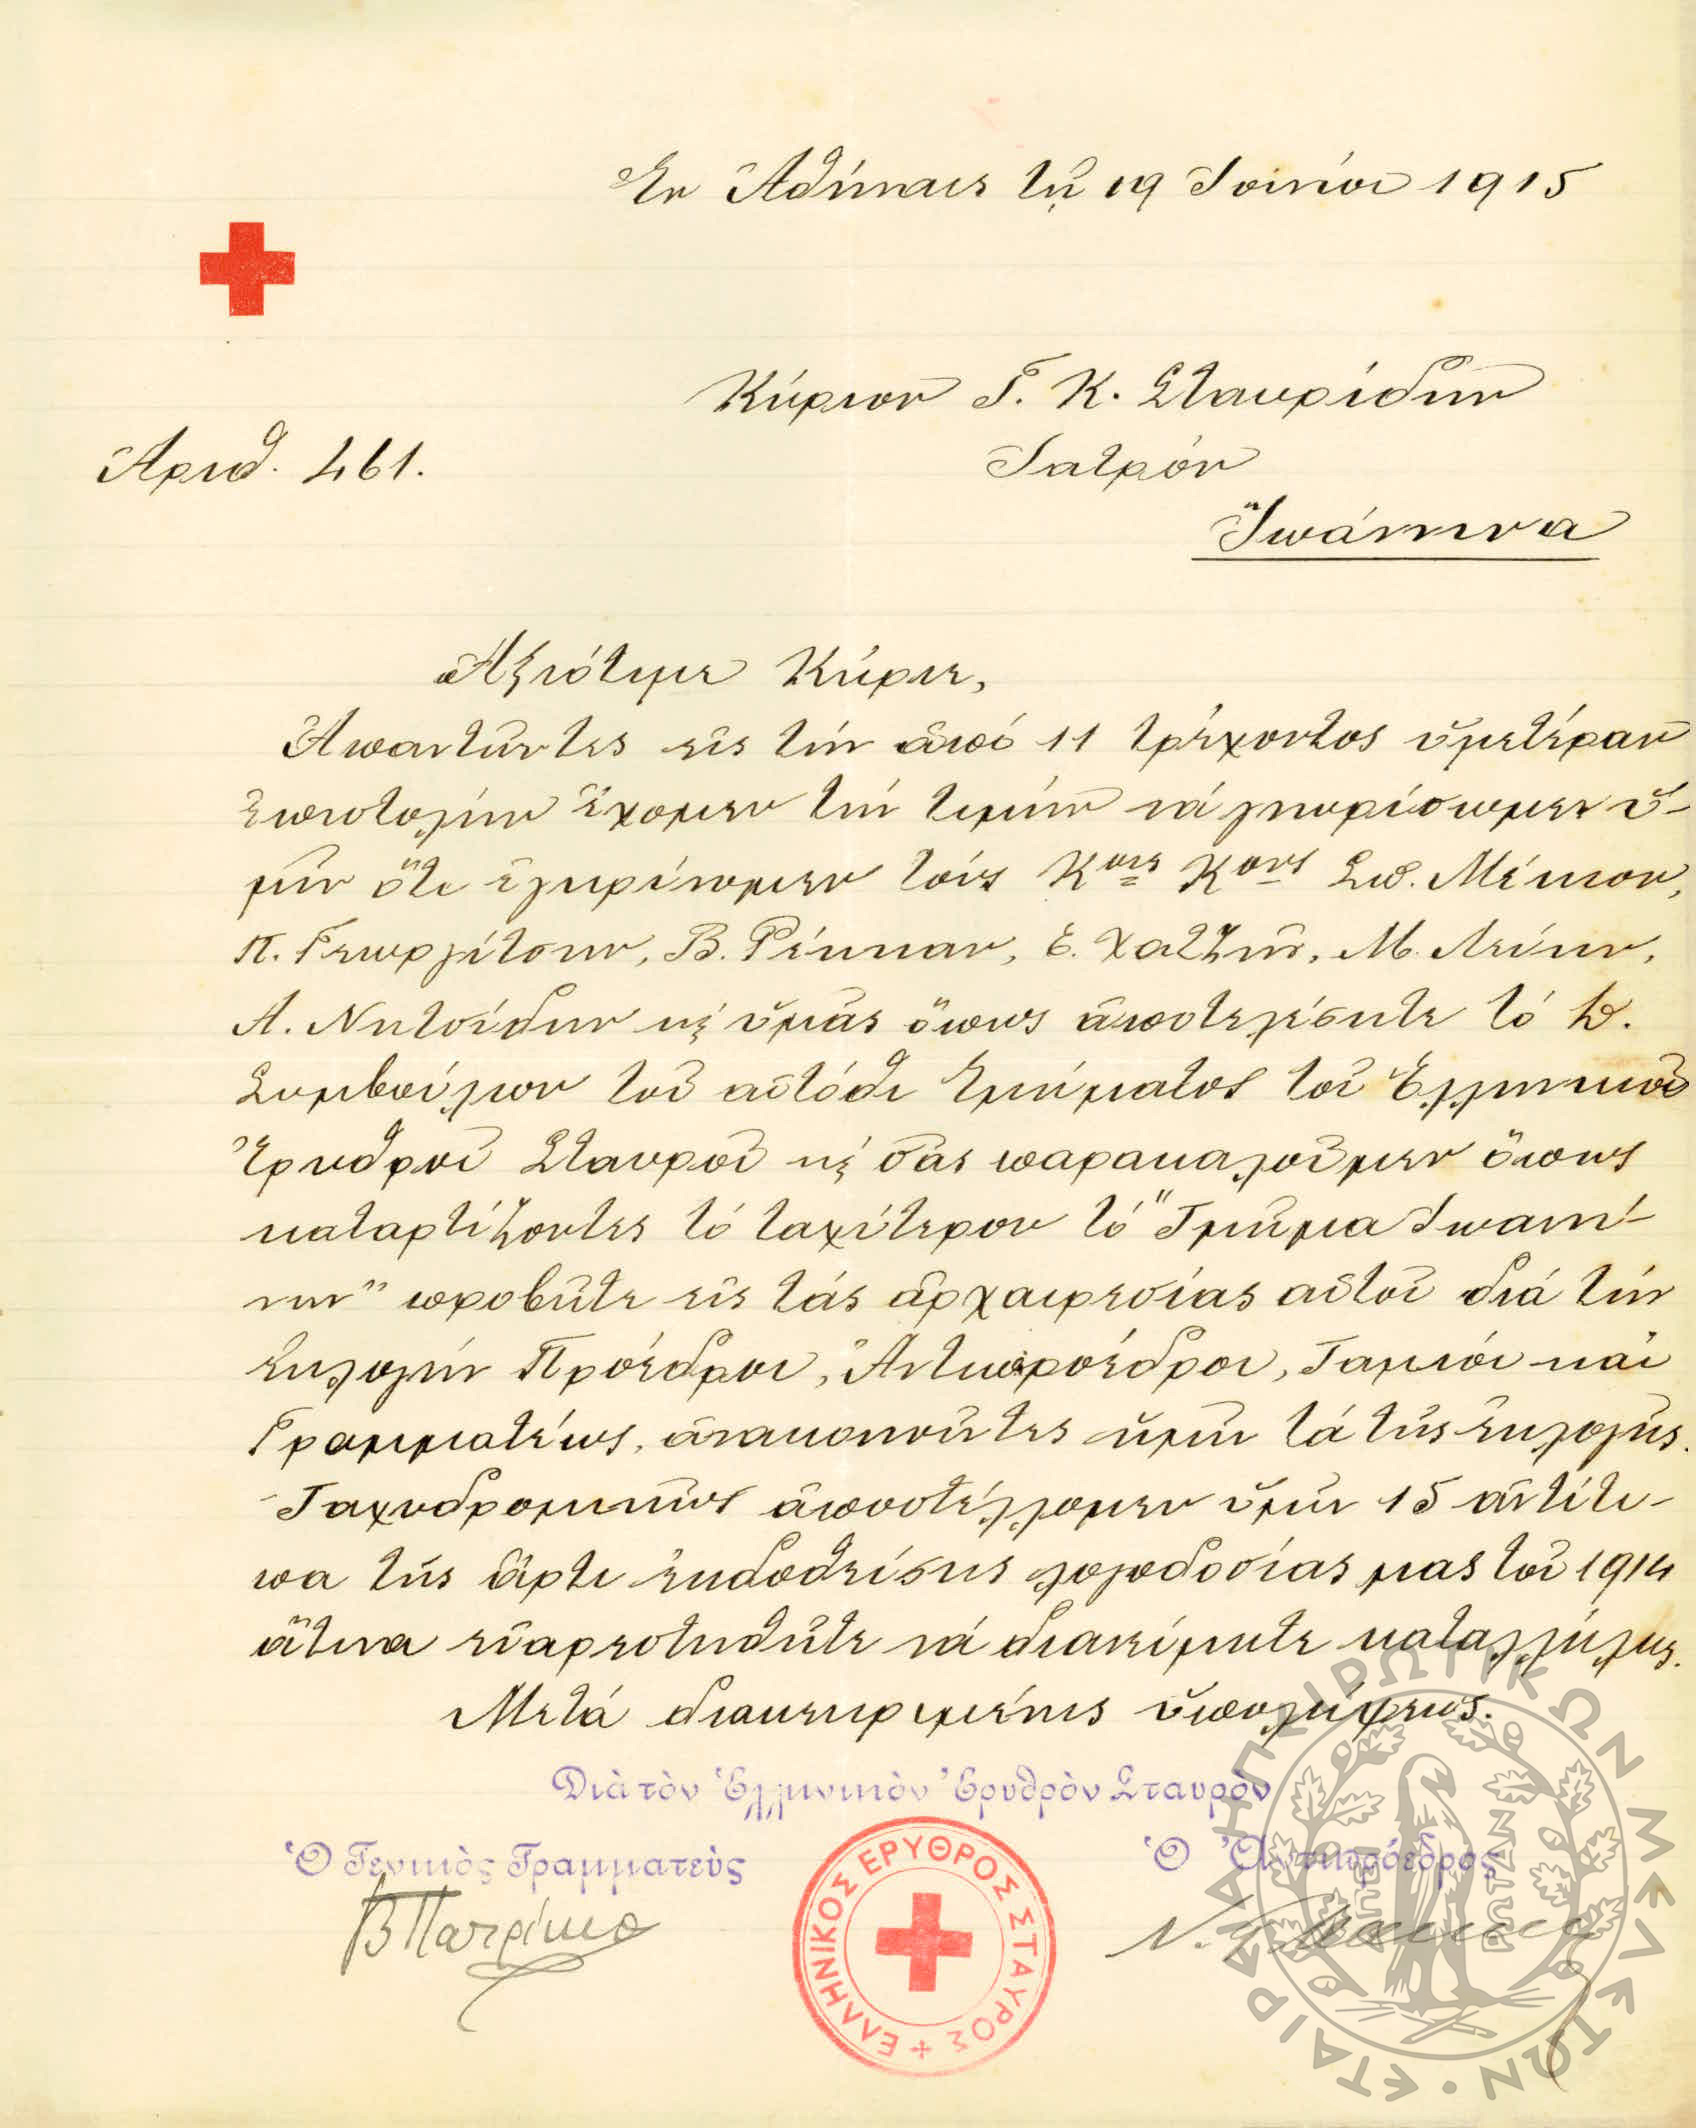 Ἐν Ἀθήναις τῇ 19 Ἰουνίου 1915
Κύριον Γ. Κ. Σταυρίδην
Ἀριθ. 461.
Ἰατρόν
Ἰωάννινα
Ἀξιότιμε Κύριε,
Ἀπαντῶντες εἰς τήν ἀπό 11 τρέχοντος ὑμετέραν
ἐπιστολήν ἔχομεν τήν τιμήν νά γνωρίσωμεν ὑ-
μῖν ὅτι ἐγκρίνομεν τούς Κους Κους Σπ. Μέκιον,
Π. Γεωργίτσην, Β. Ρέππαν, Ε. Χατζῆν, Μ. Λεύην,
Α. Νητσίδην κ ὑμᾶς ὅπως ἀποτελέσητε τό Δ.
Συμβούλιον τοῦ αὐτόθι τμήματος τοῦ Ἑλληνικοῦ
Ἐρυθροῦ Σταυροῦ κ σᾶς παρακαλοῦμεν ὅπως
καταρτίζοντες τό ταχύτερον τό "Τμῆμα Ἰωαννί-
νων" προβῆτε εἰς τάς ἀρχαιρεσίας αὐτοῦ διά τήν
ἐκλογήν Προέδρου, Ἀντιπροέδρου, Ταμίου καί
Γραμματέως, ἀνακοινοῦντες ἡμῖν τά τῆς ἐκλογῆς.
Ταχυδρομικῶς ἀποστέλλομεν ὑμῖν 15 ἀντίτυ-
πα τῆς ἄρτι ἐκδοθείσης λογοδοσίας μας τοῦ 1914
ἅτινα εὐαρεστηθῆτε νά διανείμητε καταλλήλως.
Μετά διακεκριμένης ὑπολήψεως.
Διὰ τὸν Ἑλληνικὸν Ἐρυθρὸν Σταυρὸν
Ὁ Γενικὸς Γραμματεὺς
Ὁ Ἀντιπρόεδρος
ΕΛΛΗΝΙΚΟΣ ΕΡΥΘΡΟΣ ΣΤΑΥΡΟΣ
ΒΠατρίκιο
ΕΤΑΙΡΕΙΑ ΗΠΕΙΡΩΤΙΚΩΝ ΜΕΛΕΤΩΝ